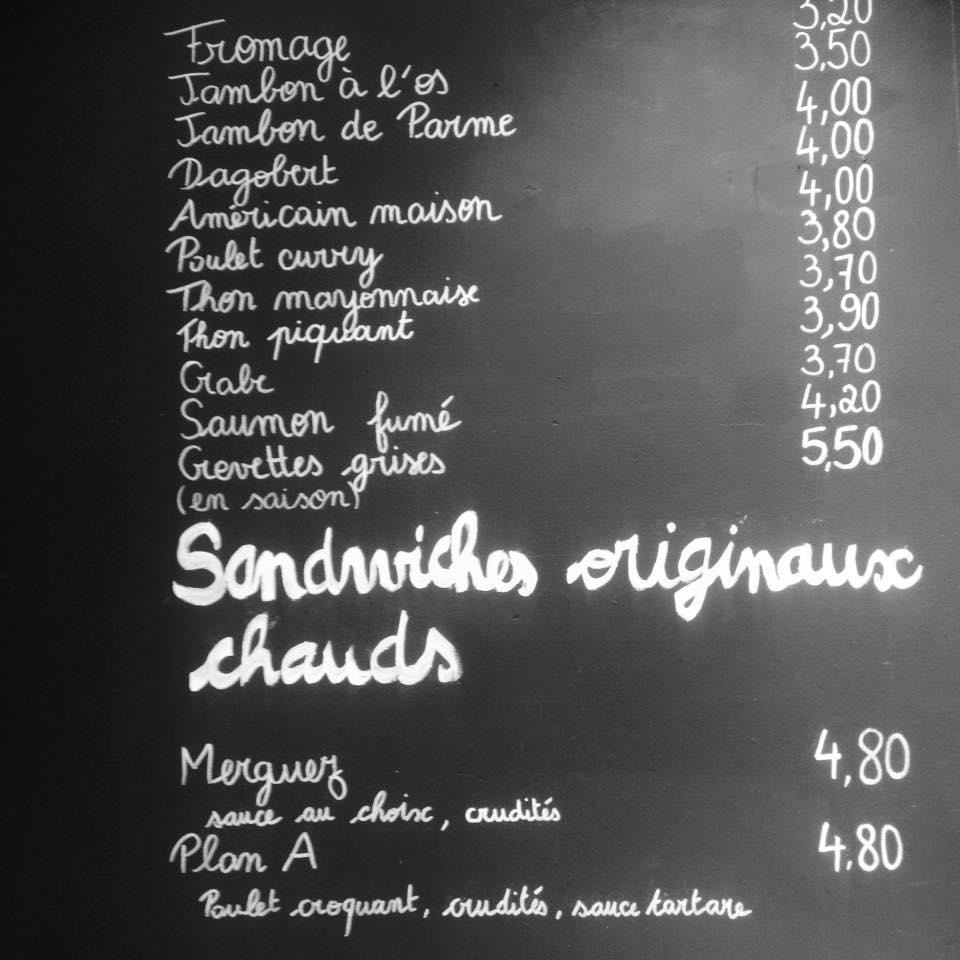 Fromage 3,20
Jambon à l'os 3,50
Jambon de Parme 4,00
Dagobert 4,00
Américain maison 4,00
Poulet curry 3,80
Thon mayonnaise 3,70
Thon piquant 3,90
Crabe 3,70
Saumon fumé 4,20
Crevettes grises 5,50
(en saison)
Sandwiches originaux
chauds
Merguez 4,80
sauce au choix, crudités
Plan A 4.80
Poulet croquant, crudités, sauce tartare